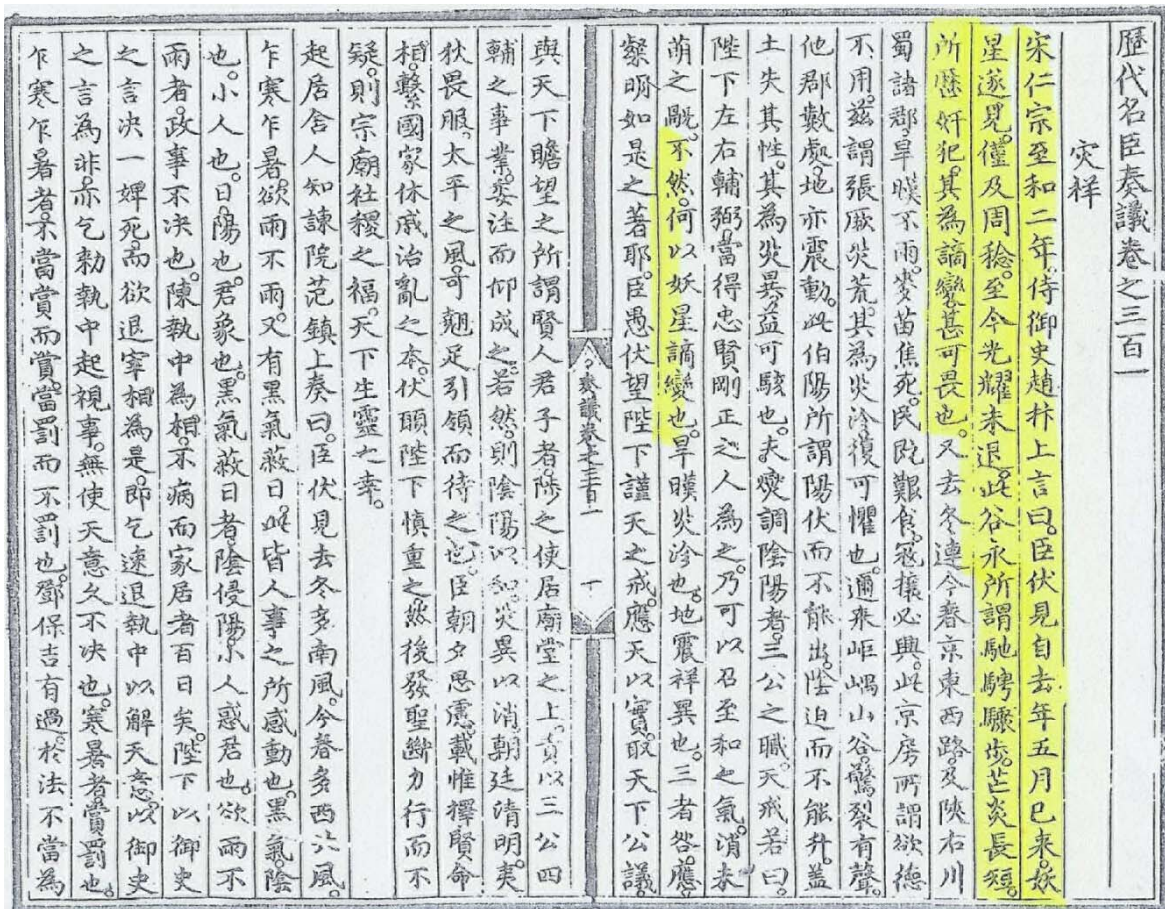 歷代名臣奏議卷之三百一
灾祥
宋仁宗至和二年。侍御史趙抃上言曰。臣伏見自去年五月已来。妖
星遂見。僅及周稔。至今光耀未退。此谷永所謂馳騁驟步。芒炎長短。
所歷奸犯。其為謫變甚可畏也。又去冬連今春京東西路。及陝右川
蜀諸郡。旱暵不雨。麥苗焦死。民既艱食。寇攘必興。此京房所謂欲德
不用。茲謂張厥災荒。其為災沴復可懼也。邇来岠嵎山谷。驚裂有聲。
他郡數處。地亦震動。此伯陽所謂陽伏而不能出。陰迫而不能升。蓋
土失其性。其為災異。益可駭也。夫燮調陰陽者。三公之職。天戒若曰。
陛下左右輔弼。當得忠賢剛正之人為之。乃可以召至和之氣。消未
萌之戱。不然。何以妖星謫變也。旱暵災沴也。地震祥異也。三者咎應。
粲明如是之著耶。臣愚伏望陛下謹天之戒。應天以實。取天下公議。
奏議卷之三百一
一
與天下瞻望之所謂賢人君子者。陟之使居廟堂之上。責以三公四
輔之事業。委注而仰成之。若然。則陰陽以和。災異以消。朝廷清明。夷
狄畏服。太平之風。可翹足引領而待之也。臣朝夕思慮。載惟擇賢命
相。繫國家休戚治亂之本。伏願陛下慎重之。然後發聖斷力行而不
疑。則宗廟社稷之福。天下生靈之幸。
起居舍人知諫院范鎮上奏曰。臣伏見去冬多南風。今春多西北風。
乍寒乍暑。欲雨不雨。又有黑氣蔽日。此皆人事之所感動也。黑氣。陰
也。小人也。日。陽也。君象也。黑氣蔽日者。陰侵陽。小人惑君也。欲雨不
雨者。政事不决也。陳執中為相。不病而家居者百日矣。陛下以御史
之言决一婢死。而欲退宰相為是。即乞速退執中以解天意。以御史
之言為非。亦乞勑執中起視事。無使天意久不决也。寒暑者。賞罰也。
乍寒乍暑者。不當賞而賞。當罰而不罰也。鄧保吉有過。於法不當為